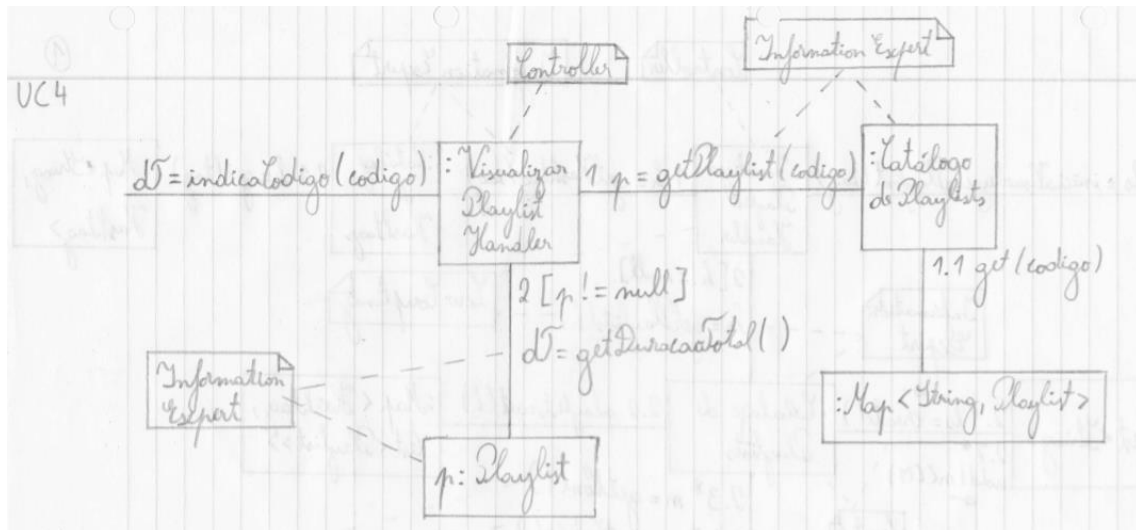 Controller
Information Expert
UC4
dT = indicaCodigo(codigo)
:Visualizar
Playlist
Handler
1 p = getPlaylist(codigo)
:Catálogo
de Playlists
1.1 get(codigo)
2 [p != null]
dT = getDuracaoTotal()
Information
Expert
:Map<String, Playlist>
p: Playlist